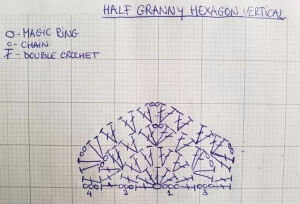 HALF GRANNY HEXAGON VERTICAL
O - MAGIC RING
o - CHAIN
Ŧ - DOUBLE CROCHET
4 2 1 3